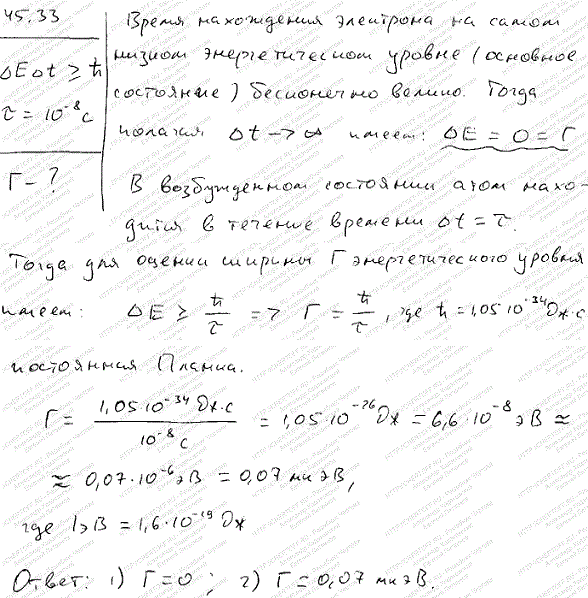 45.33
ΔEΔt ≥ ħ
τ = 10⁻⁸ c
Г – ?
Время нахождения электрона на самом
низком энергетическом уровне (основное
состояние) бесконечно велико. Тогда
полагая Δt → ∞ имеем: ΔE = 0 = Г
В возбужденном состоянии атом нахо-
дится в течение времени Δt = τ.
Тогда для оценки ширины Г энергетического уровня
имеем: ΔE ≥ ħ/τ => Г = ħ/τ, где ħ = 1,05·10⁻³⁴ Дж·с
постоянная Планка.
Г = 1,05·10⁻³⁴ Дж·с / 10⁻⁸ с = 1,05·10⁻²⁶ Дж = 6,6·10⁻⁸ эВ ≈
≈ 0,07·10⁻⁶ эВ = 0,07 мкэВ,
где 1эВ = 1,6·10⁻¹⁹ Дж
Ответ: 1) Г = 0; 2) Г = 0,07 мкэВ.